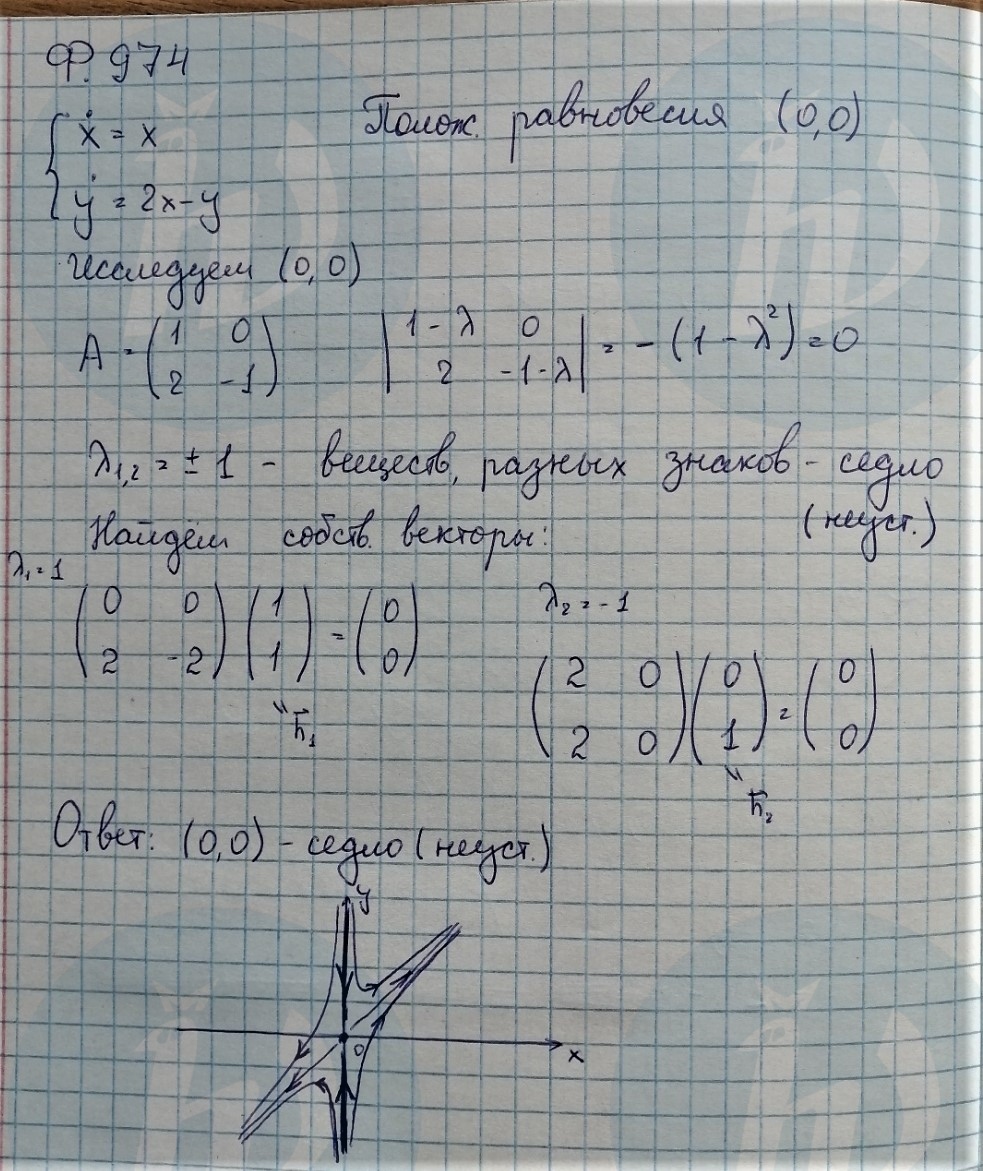 Ф. 974
{ ẋ = x
Полож. равновесия (0,0)
ẏ = 2x-y
Исследуем (0,0)
A = (1 0; 2 -1) |1-λ 0; 2 -1-λ| = -(1-λ²)=0
λ₁,₂ = ±1 - веществ, разных знаков - седло
(неуст.)
Найдём собств. векторы:
λ₁=1
(0 0; 2 -2)(1; 1) = (0; 0)
h⃗₁
λ₂=-1
(2 0; 2 0)(0; 1) = (0; 0)
h⃗₂
Ответ: (0,0) - седло (неуст.)
y
0
x